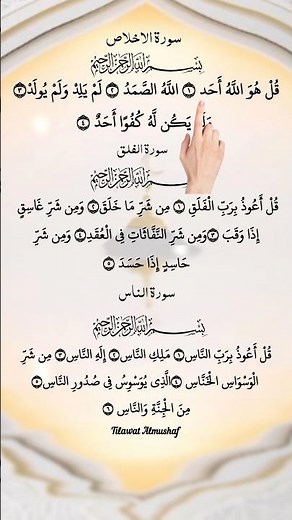 سورة الاخلاص
بِسْمِ اللَّهِ الرَّحْمَٰنِ الرَّحِيمِ
قُلْ هُوَ اللَّهُ أَحَد ۝١ اللَّهُ الصَّمَدُ ۝٢ لَمْ يَلِدْ وَلَمْ يُولَدْ ۝٣
يَكُن لَّهُ كُفُوًا أَحَدٌ ۝٤
سورة الفلق
بِسْمِ اللَّهِ الرَّحْمَٰنِ الرَّحِيمِ
قُلْ أَعُوذُ بِرَبِّ الْفَلَقِ ۝١ مِن شَرِّ مَا خَلَقَ ۝٢ وَمِن شَرِّ غَاسِقٍ
إِذَا وَقَبَ ۝٣ وَمِن شَرِّ النَّفَّاثَاتِ فِي الْعُقَدِ ۝٤ وَمِن شَرِّ
حَاسِدٍ إِذَا حَسَدَ ۝٥
سورة الناس
بِسْمِ اللَّهِ الرَّحْمَٰنِ الرَّحِيمِ
قُلْ أَعُوذُ بِرَبِّ النَّاسِ ۝١ مَلِكِ النَّاسِ ۝٢ إِلَٰهِ النَّاسِ ۝٣ مِن شَرِّ
الْوَسْوَاسِ الْخَنَّاسِ ۝٤ الَّذِي يُوَسْوِسُ فِي صُدُورِ النَّاسِ ۝٥
مِنَ الْجِنَّةِ وَالنَّاسِ ۝٦
Tilawat Almushaf